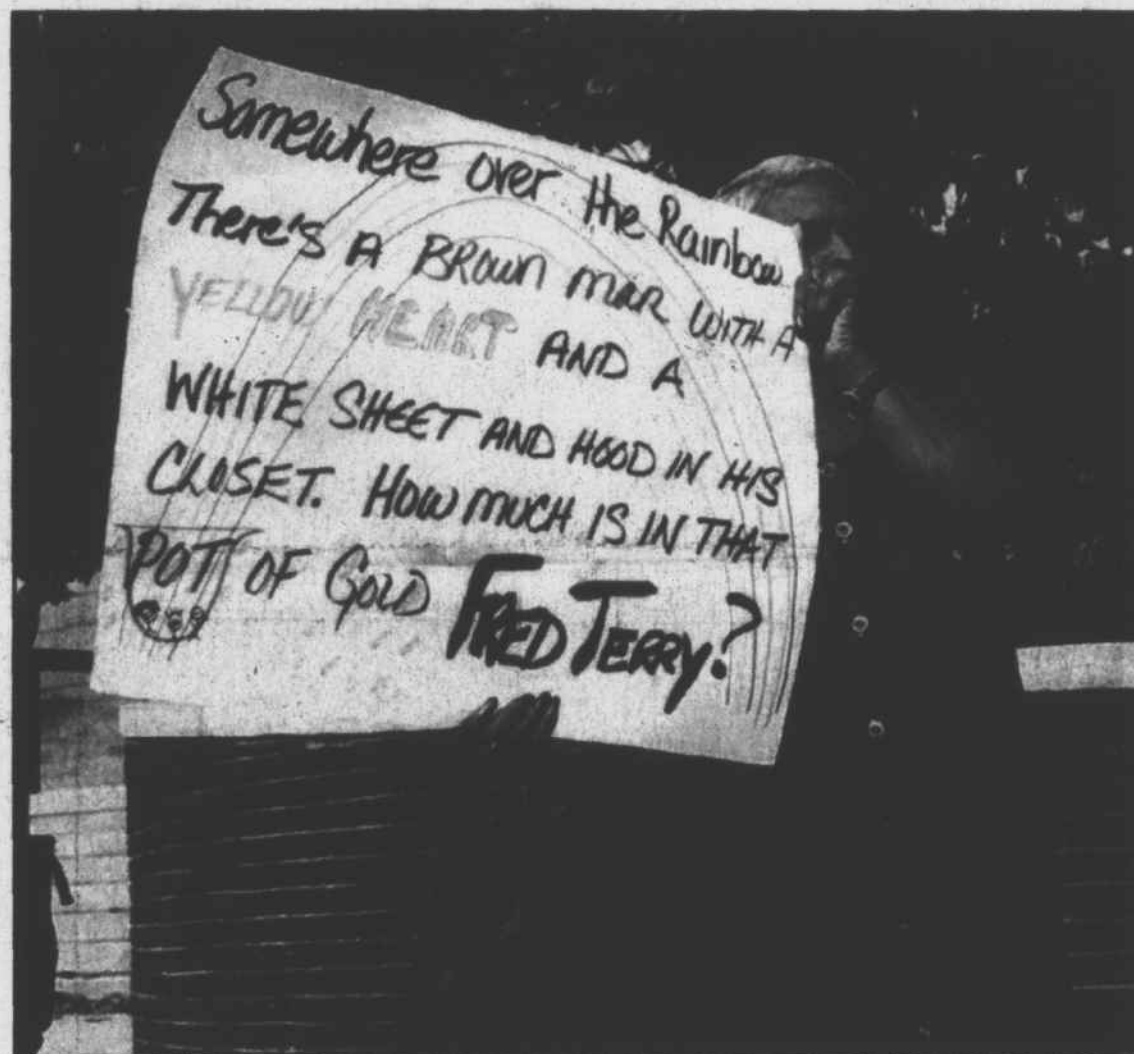 Somewhere over the Rainbow
There's A BROWN MAN WITH A
YELLOW HEART AND A
WHITE SHEET AND HOOD IN HIS
CLOSET. HOW MUCH IS IN THAT
POT OF GOLD FRED TERRY?